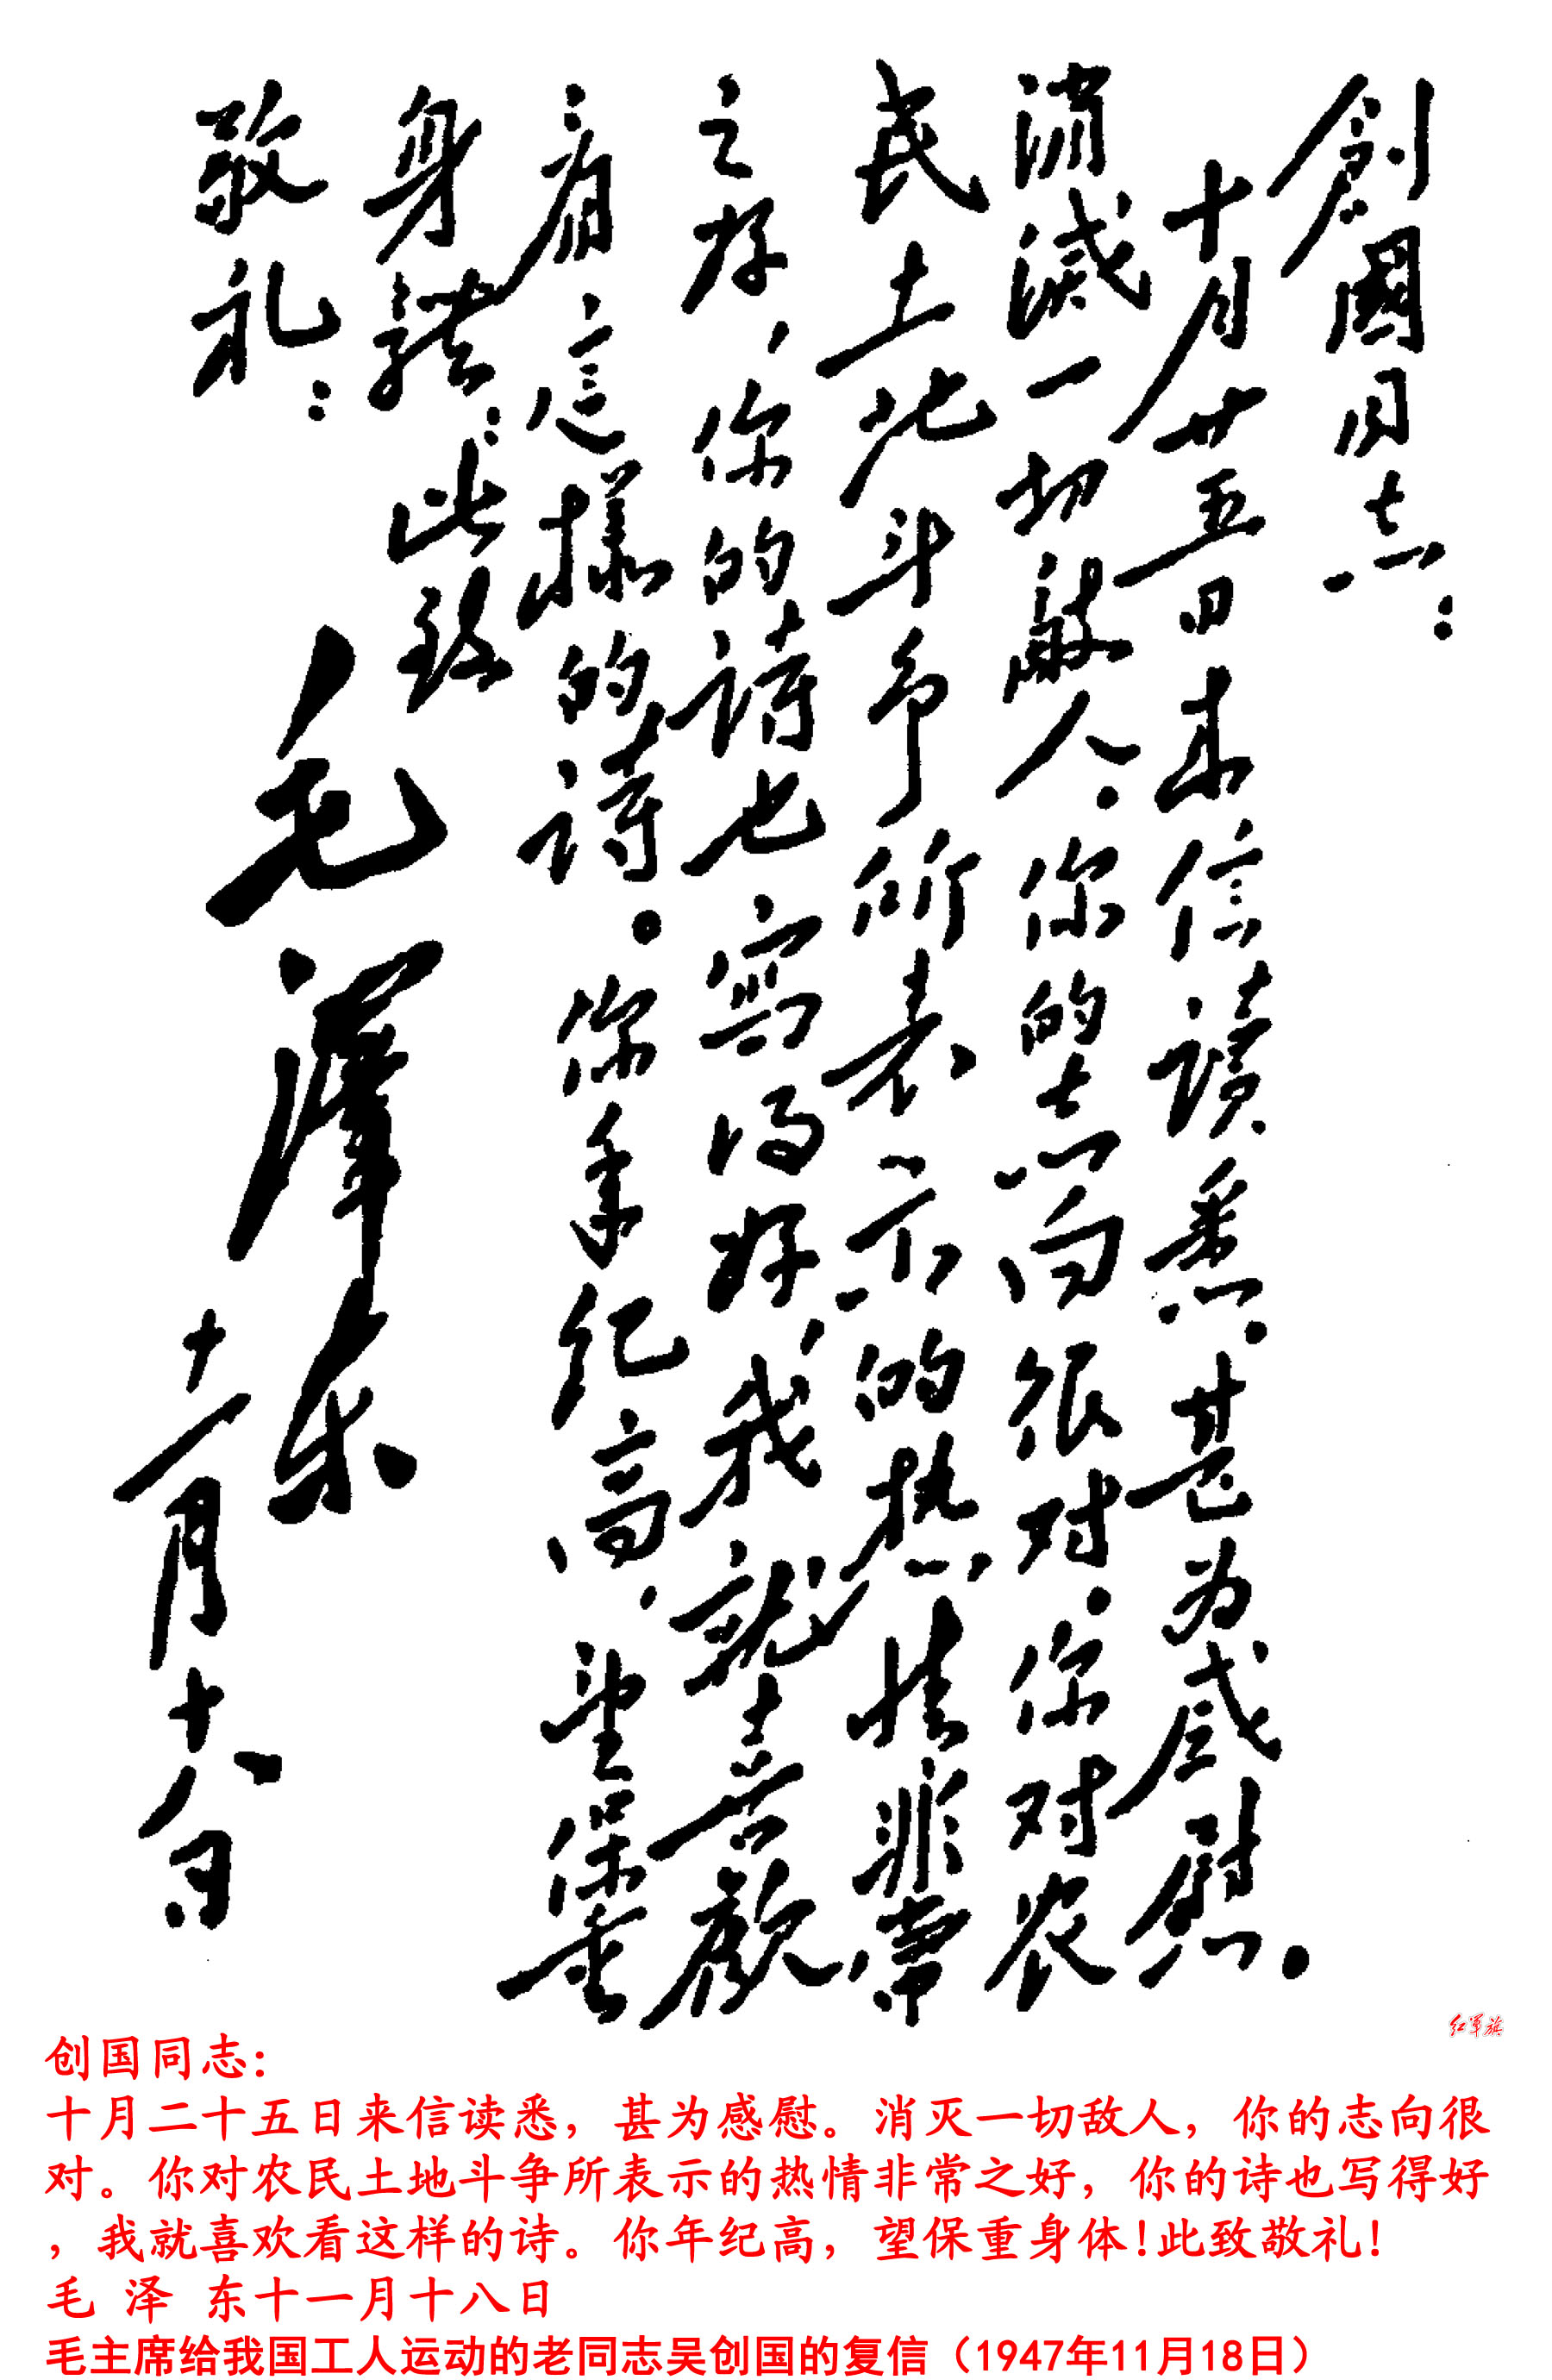 創國同志：
十月廿五日来信讀悉，甚为感慰。
消滅一切敵人，你的志向很对。你对农
民土地斗争所表示的热情非常
之好，你的詩也寫得好，我就喜歡
看這樣的詩。你年纪高，望保重
身體！此致
敬礼！
毛澤东
十一月十八日
红军旗
创国同志：
十月二十五日来信读悉，甚为感慰。消灭一切敌人，你的志向很
对。你对农民土地斗争所表示的热情非常之好，你的诗也写得好
，我就喜欢看这样的诗。你年纪高，望保重身体!此致敬礼!
毛 泽 东十一月十八日
毛主席给我国工人运动的老同志吴创国的复信（1947年11月18日）